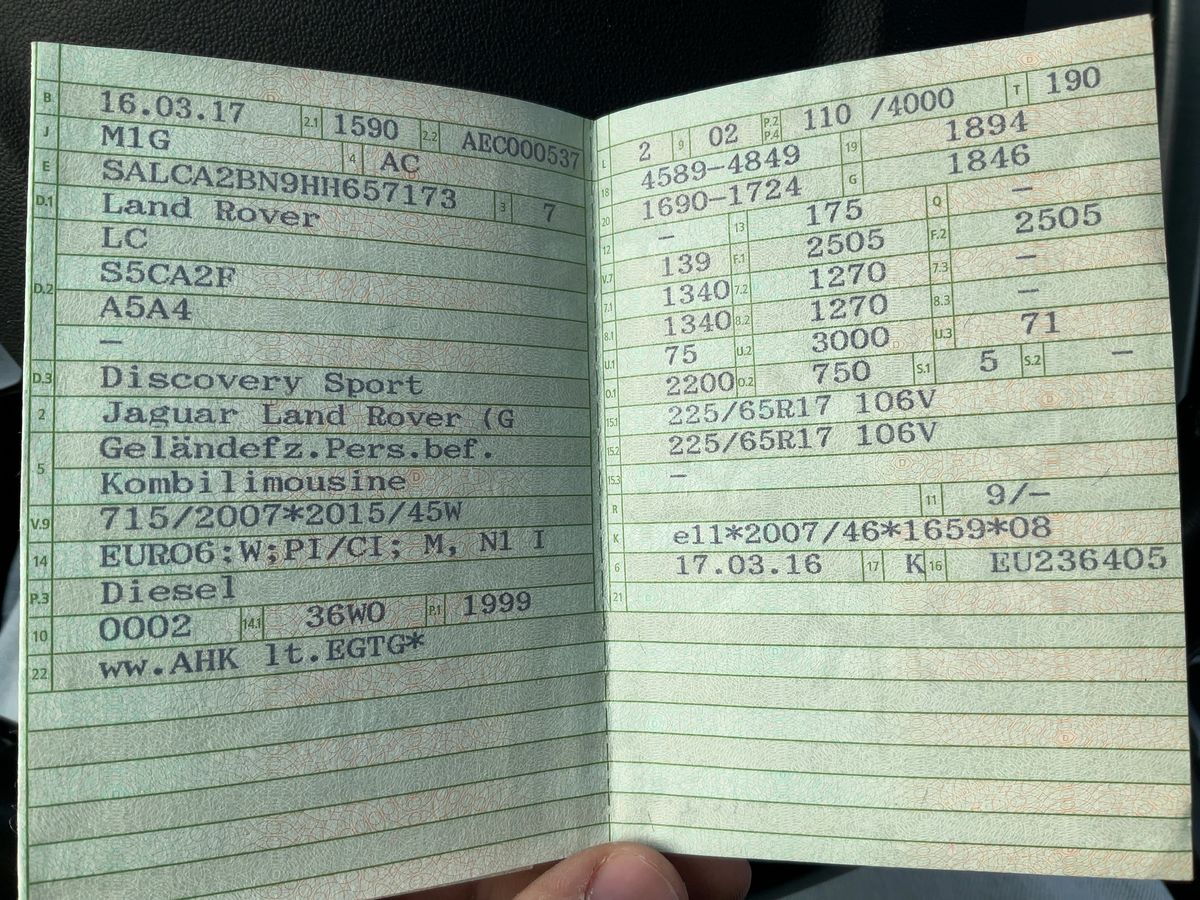 B 16.03.17 2.1 1590 2.2 AEC000537
J M1G 4 AC
E SALCA2BN9HH657173 3 7
D.1 Land Rover
LC
D.2 S5CA2F
A5A4
—
D.3 Discovery Sport
2 Jaguar Land Rover (G
5 Geländefz.Pers.bef.
Kombilimousine
V.9 715/2007*2015/45W
14 EURO6;W;PI/CI; M, N1 I
P.3 Diesel
10 0002 14.1 36W0 P.1 1999
22 ww.AHK lt.EGTG*
L 2 9 02 P.2 P.4 110 /4000 T 190
18 4589-4849 19 1894
20 1690-1724 G 1846
12 — 13 175 Q —
V.7 139 F.1 2505 F.2 2505
7.1 1340 7.2 1270 7.3 —
8.1 1340 8.2 1270 8.3 —
U.1 75 U.2 3000 U.3 71
O.1 2200 O.2 750 S.1 5 S.2 —
15.1 225/65R17 106V
15.2 225/65R17 106V
15.3 —
R 11 9/—
K e11*2007/46*1659*08
6 17.03.16 17 K 16 EU236405
21